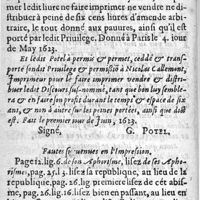 mer ledit liure ne faire imprimer ne vendre ne di-
stribuer à peine de six cens liures d'amende arbi-
traire, le tout donné aux pauures, ainsi qu'il est
porté par ledit Priuilege. Donné à Paris le 4. iour
de May 1623.
Et ledit Potel a permis & permet, cedde & trans-
porte sondit Priuilege & permissiõ à Nicolas Callemont,
Imprimeur pour le faire imprimer vendre & distri-
buer ledit Discours sus-nommé, tant que bon luy semble-
ra & en faire son profit durant le temps & espace de six
ans, & non à autre sur les peines portées, ainsi que dessus
est. Fait le premier iour de Iuin, 1623.
Signé, G. POTEL.
Fautes suruenues en l'Impression,
Page 12. lig. 6. de son Aphorisme, lisez de ses Apho-
rismes, pag. 25. l. 3. lisez sa republique, au lieu de la
republique, pag. 26. lig. premiere lisez de cét abis-
me, pag. 26. lig. en sa republique, au lieu